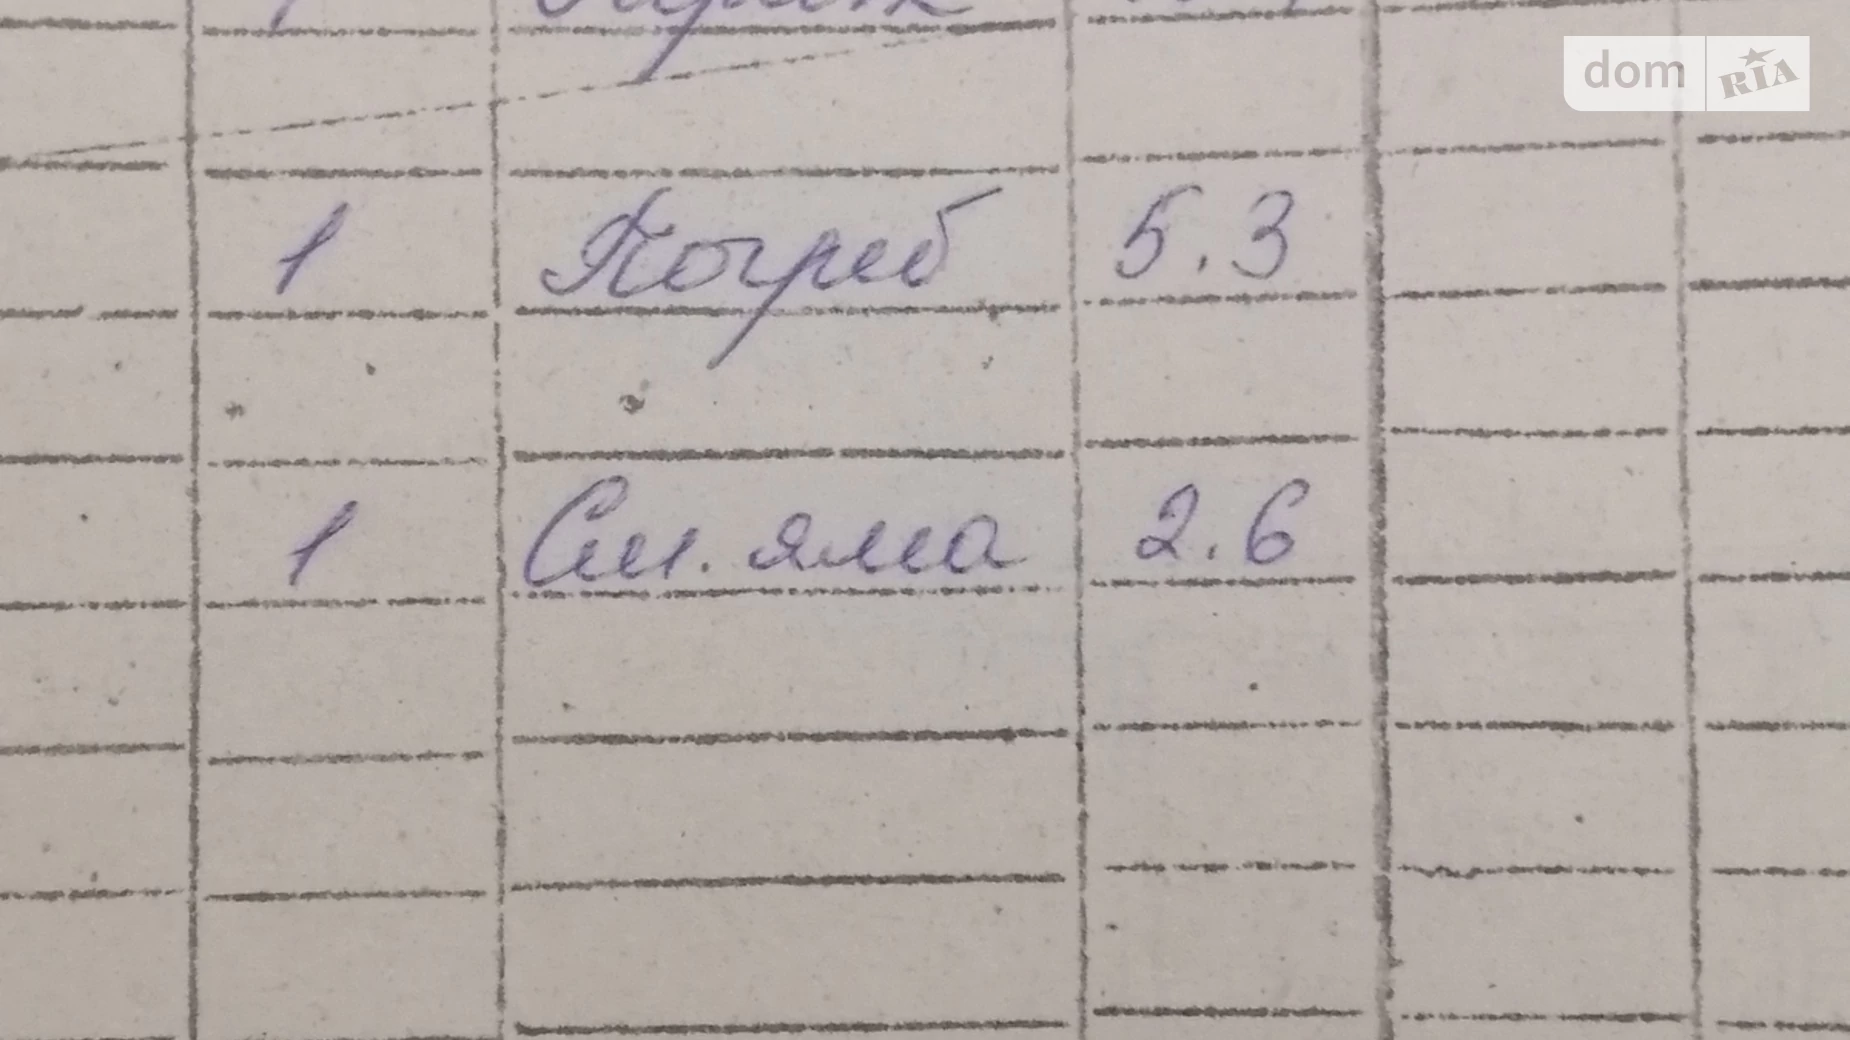 dom RIA
1 Погреб 5.3
1 См. яма 2.6